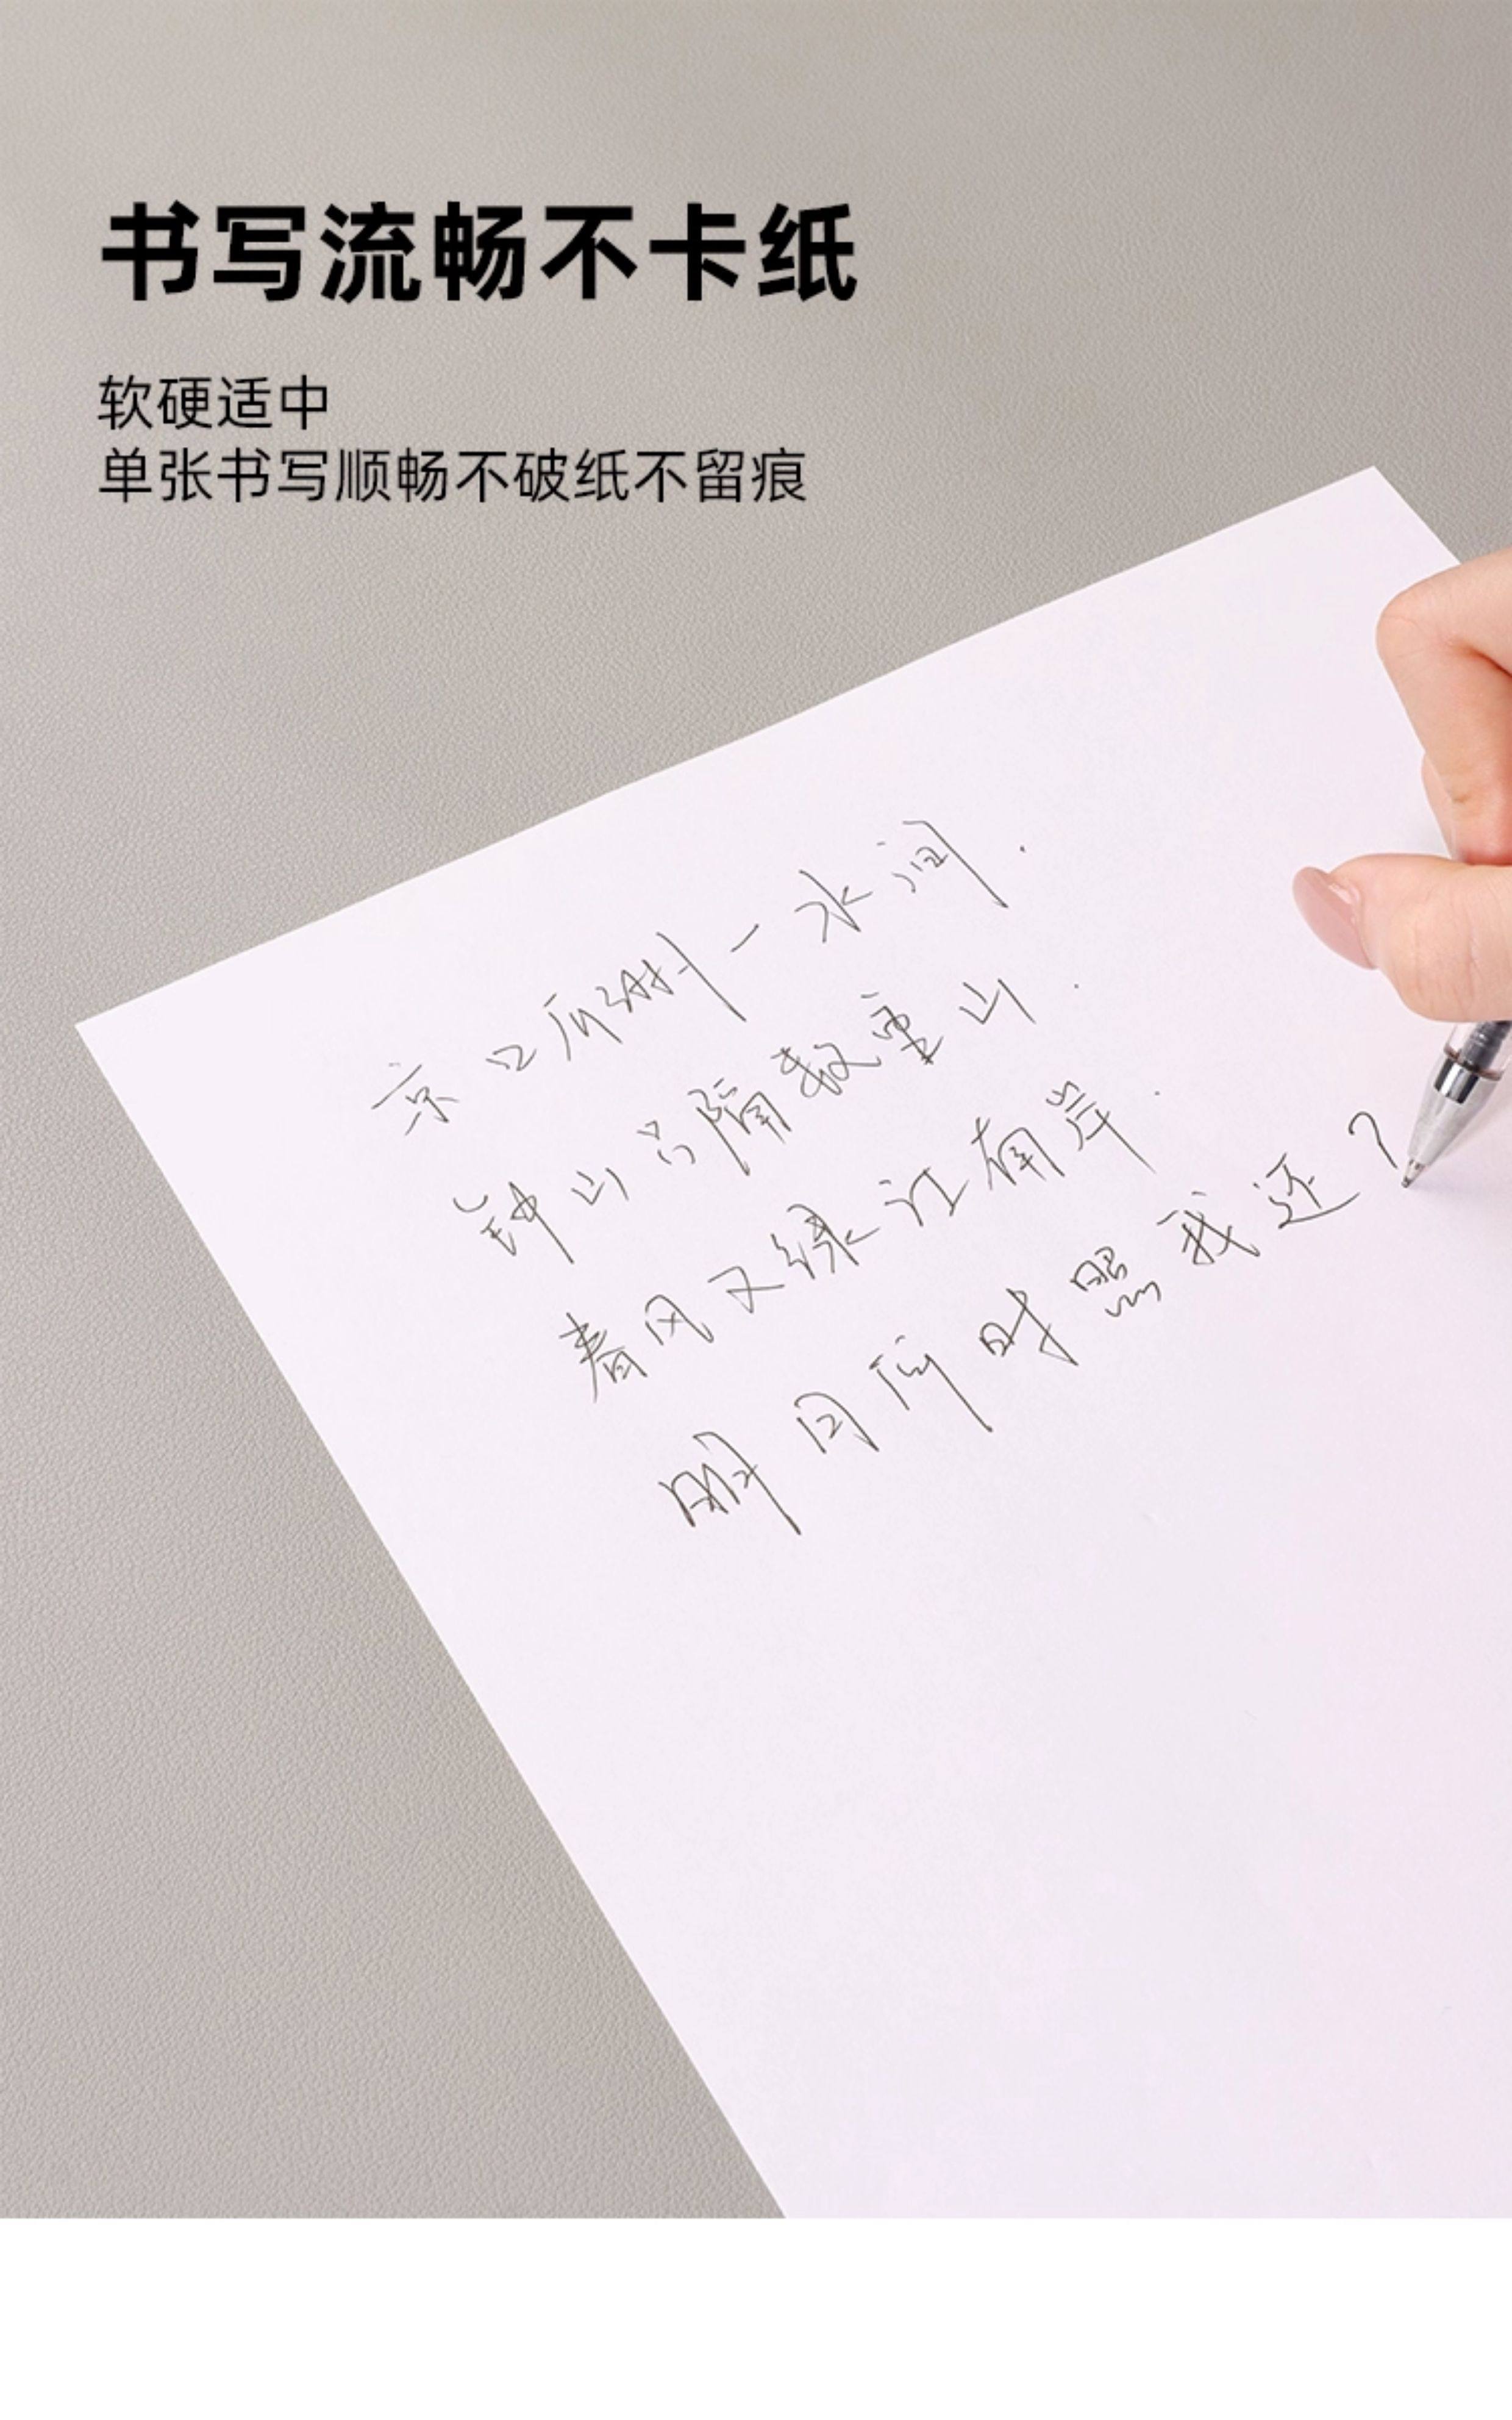 书写流畅不卡纸
软硬适中
单张书写顺畅不破纸不留痕
京口瓜洲一水间.
钟山只隔数重山.
春风又绿江南岸.
明月何时照我还?